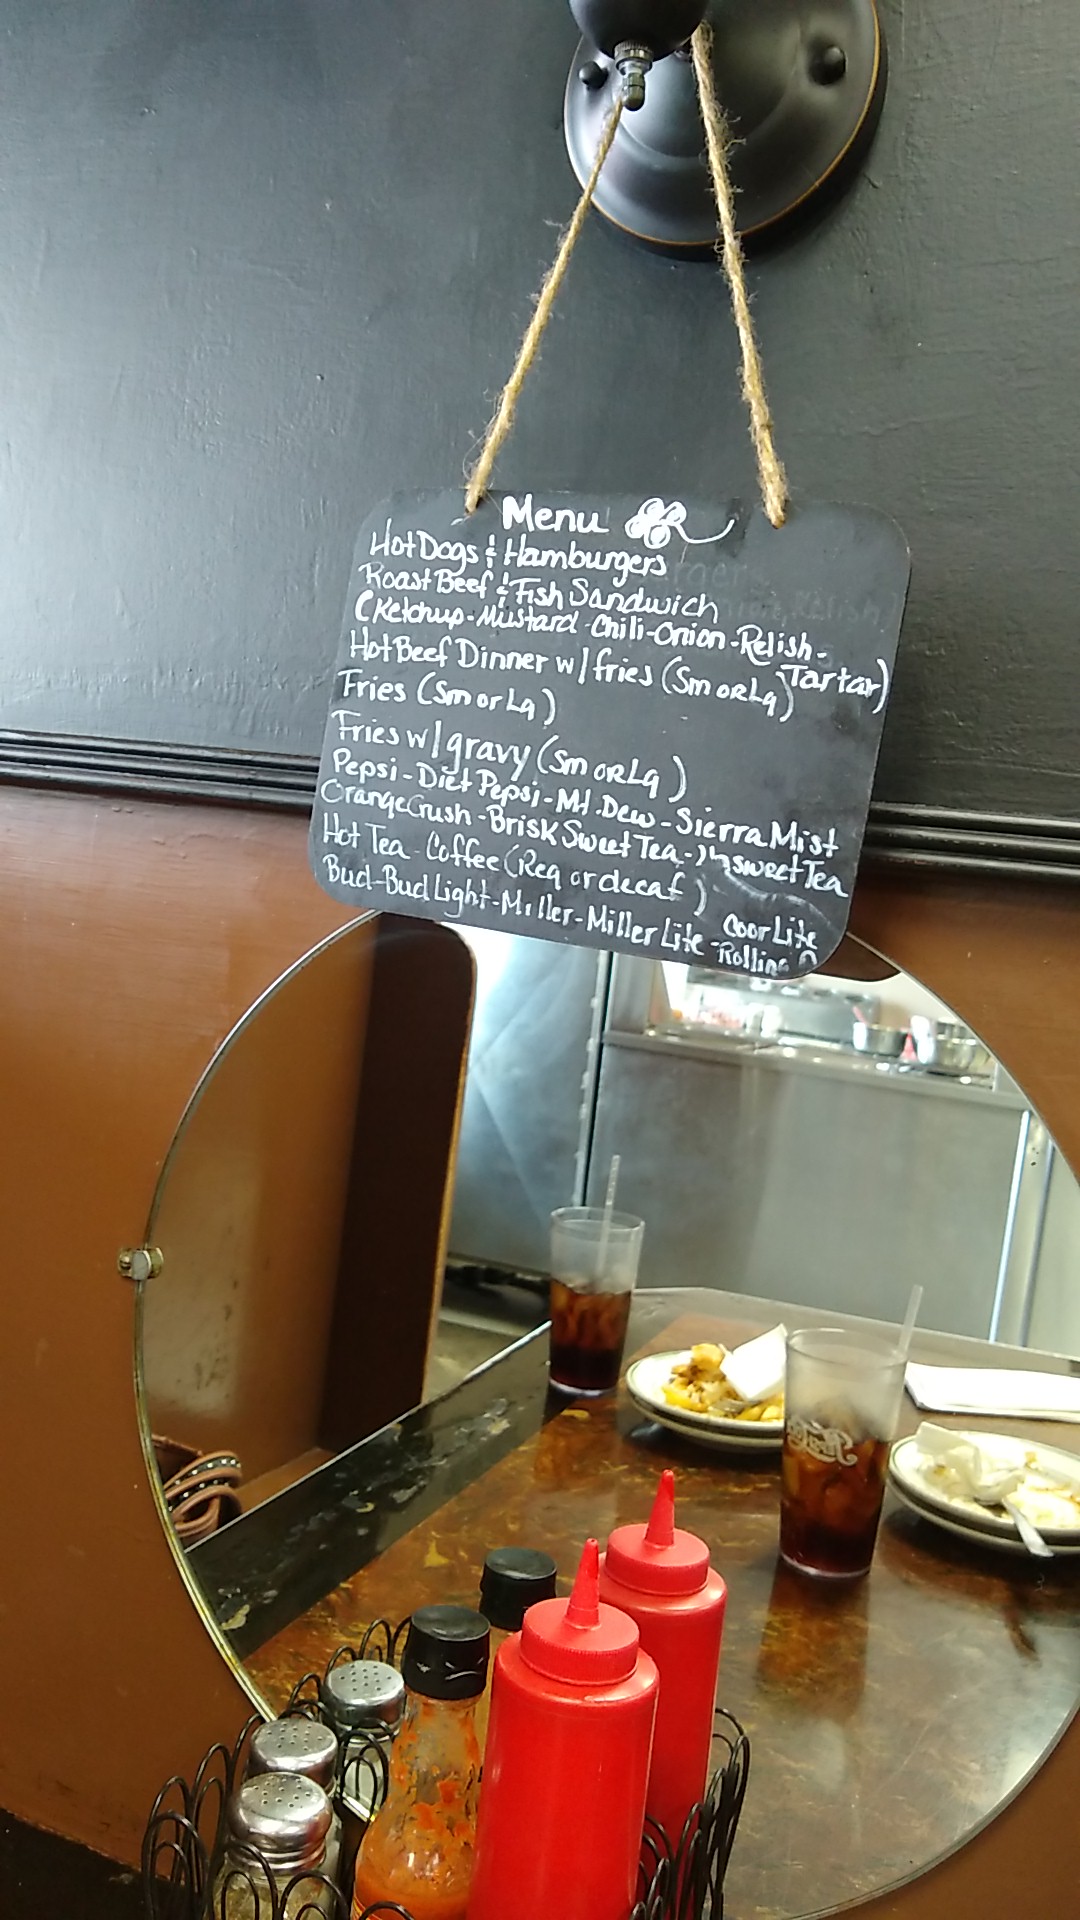 Menu
Hot Dogs & Hamburgers
Roast Beef & Fish Sandwich
(Ketchup-Mustard-Chili-Onion-Relish-
Tartar)
Hot Beef Dinner w/fries (Sm or Lg)
Fries (Sm or Lg)
Fries w/gravy (Sm or Lg)
Pepsi-Diet Pepsi-Mt.Dew-Sierra Mist
Orange Crush-Brisk Sweet Tea-Unsweet Tea
Hot Tea-Coffee (Reg or decaf)
Coor Lite
Bud-Bud Light-Miller-Miller Lite-Rolling